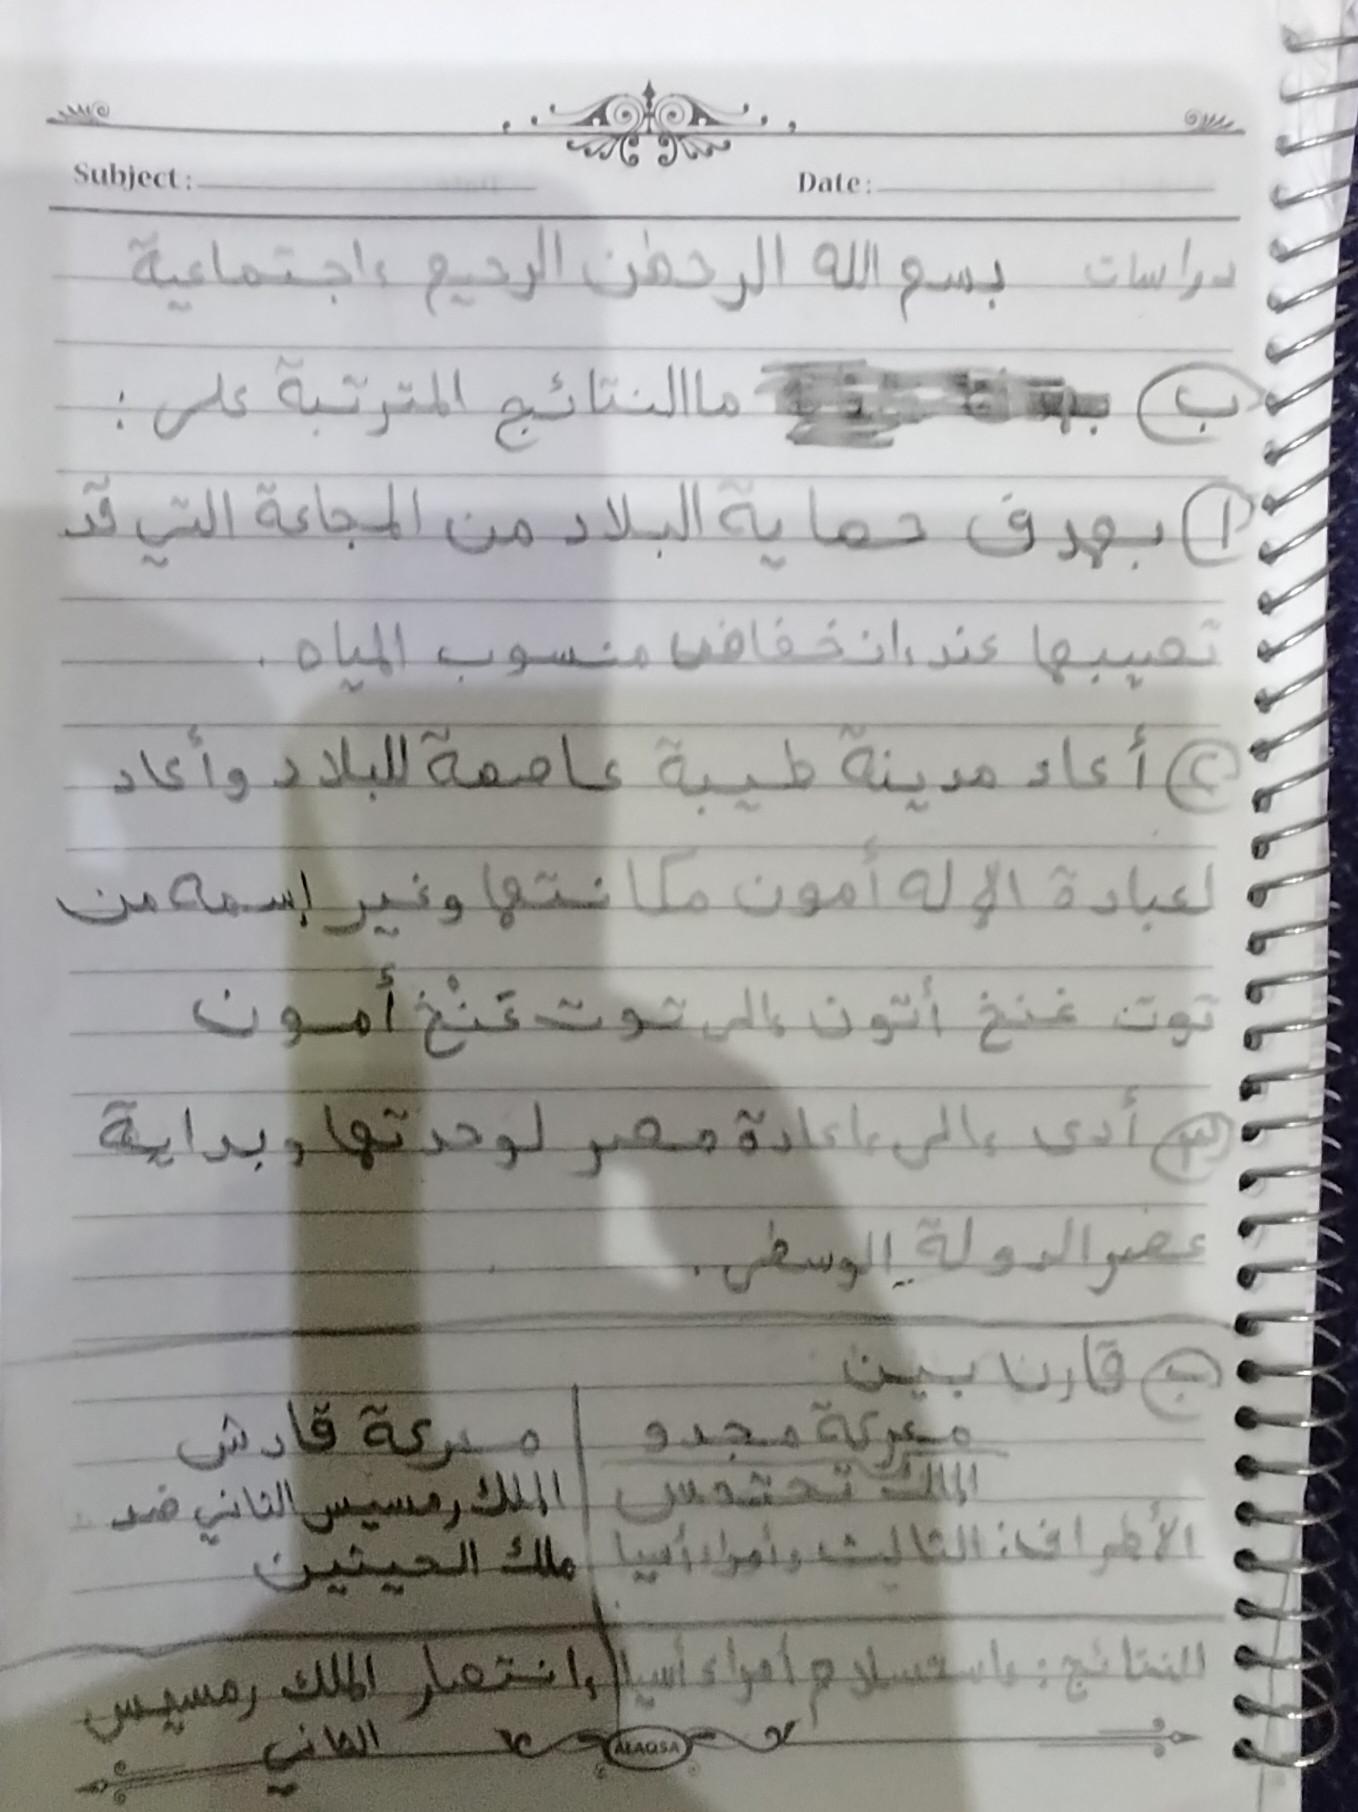 Subject: Date:
دراسات بسم الله الرحمٰن الرحيم إجتماعية
ب ما النتائج المترتبة على :
١ بهدف حماية البلاد من المجاعة التي قد
تصيبها عند إنخفاض منسوب المياه .
٢ أعاد مدينة طيبة عاصمة للبلاد وأعاد
لعبادة الإله أمون مكانتها وغير إسمه من
توت غنخ أتون إلى توت عَنْخ أمون
٣ أدى إلى إعادة مصر لوحدتها وبداية
عصر الدولة الوسطى .
ب قارن بين
معركة مجدو معركة قادش
الملك تحتمس الملك رمسيس الثاني ضد
الأطراف: الثالث وأمراء أسيا ملك الحيثين
النتائج: إستسلام أمراء أسيا إنتصار الملك رمسيس
الثاني
ALAQSA